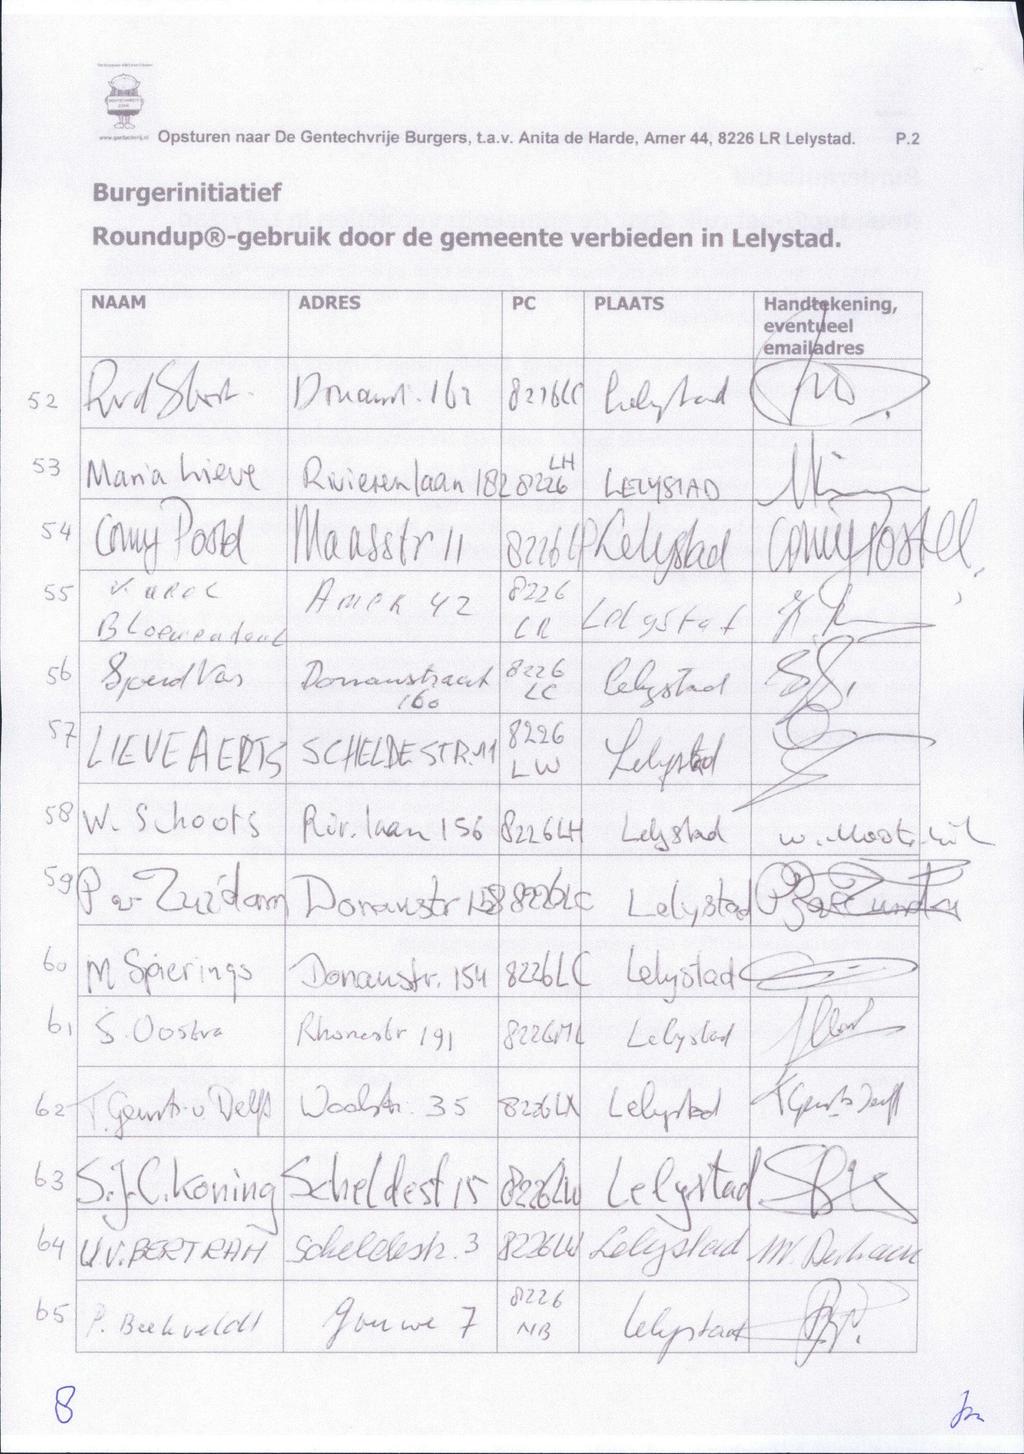 www.gentechvrij.nl Opsturen naar De Gentechvrije Burgers, t.a.v. Anita de Harde, Amer 44, 8226 LR Lelystad. P.2
Burgerinitiatief
Roundup®-gebruik door de gemeente verbieden in Lelystad.
NAAM ADRES PC PLAATS Handtekening,
eventueel
emailadres
52 162 8226LC Lelystad
53 Maria Lieve Rivierenlaan 182 8226 LH LELYSTAD
54 Conny Postel Maasstr 11 8226 LP Lelystad Conny Postel
55 Karel Amer 42 8226
Bloemendaal LR Lelystad
56 Sjoerd Vas Donaustraat 8226 Lelystad
160 LC
57 LIEVE AERTS SCHELDESTR.11 8226 Lelystad
LW
58 W. Schoots Riv. laan 156 8226LH Lelystad
59 P v. Zuidam Donaustr 158 8226LC Lelystad
60 M Spierings Donaustr. 154 8226LC Lelystad
61 S. Oostra Rhonestr 191 8226ML Lelystad
62 T. v Delft 35 Lelystad
63 S.J.C. Koning Scheldest 15 8226LW Lelystad
64 BERTRAM Scheldestr. 3 8226LW Lelystad
65 P. Gouwe 7 8226 Lelystad
NB
8